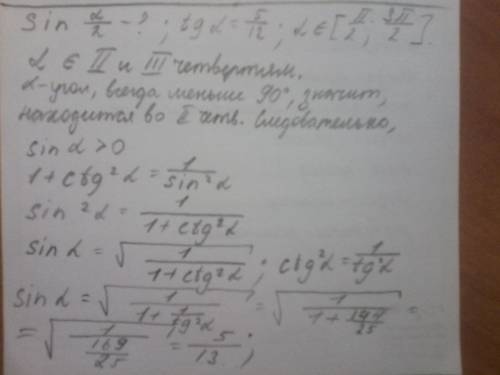 sin α/2 - ? ; tg α = 5/12 ; α ∈ [π/2; 3π/2].
α ∈ II и III четвертям.
α-угол, всегда меньше 90°, значит,
находится во I четв. Следовательно,
sin α > 0
1 + ctg²α = 1/sin²α
sin²α = 1/(1 + ctg²α)
sin α = √(1/(1 + ctg²α)) ; ctg²α = 1/tg²α
sin α = √(1/(1 + 1/tg²α)) = √(1/(1 + 144/25)) =
= √(1/(169/25)) = 5/13 ;